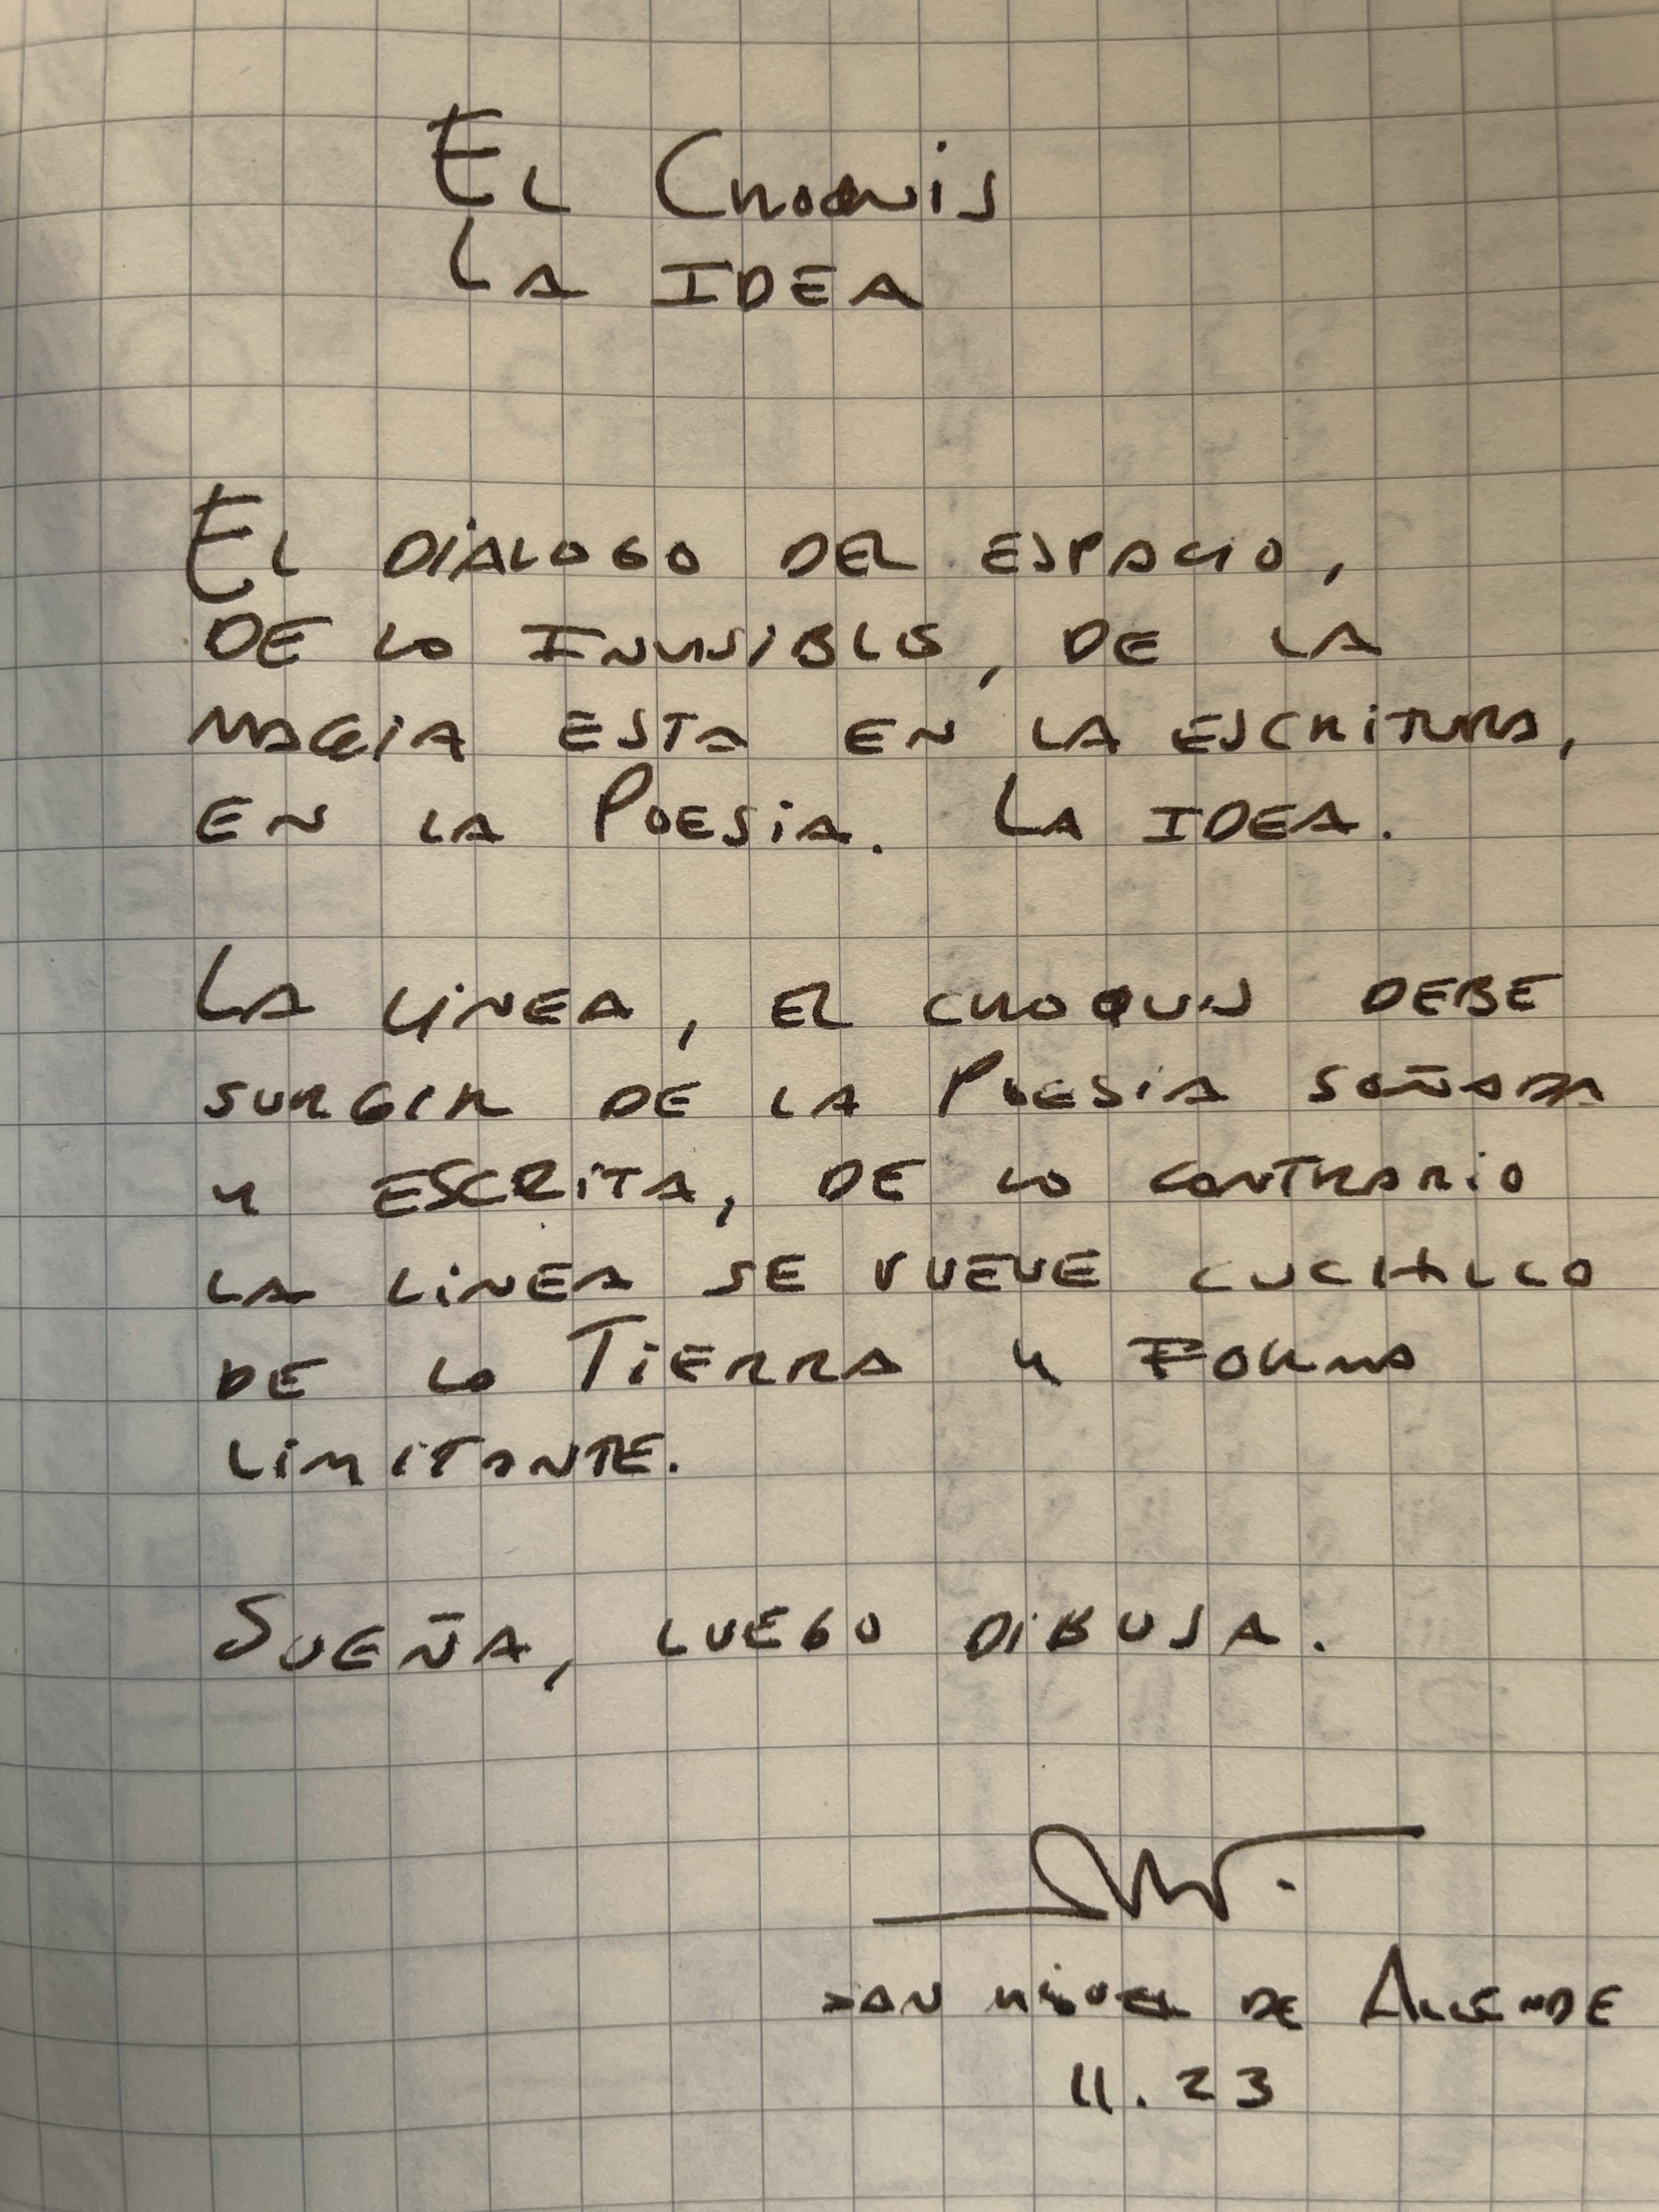 El Croquis
La IDEA
El DiALOGO DEL ESPACIO,
DE LO INVISIBLE, DE LA
MAGIA ESTA EN LA ESCRITURA,
EN LA POESiA. LA IDEA.
LA LiNEA, EL CROQUIS DEBE
SURGIR DE LA POESiA SOÑADA
Y ESCRITA, DE LO CONTRARIO
LA LiNEA SE VUELVE CUCHILLO
DE LA TIERRA Y FORMA
LIMITANTE.
SUEÑA, LUEGO DIBUJA.
SAN MIGUEL DE ALLENDE
11.23